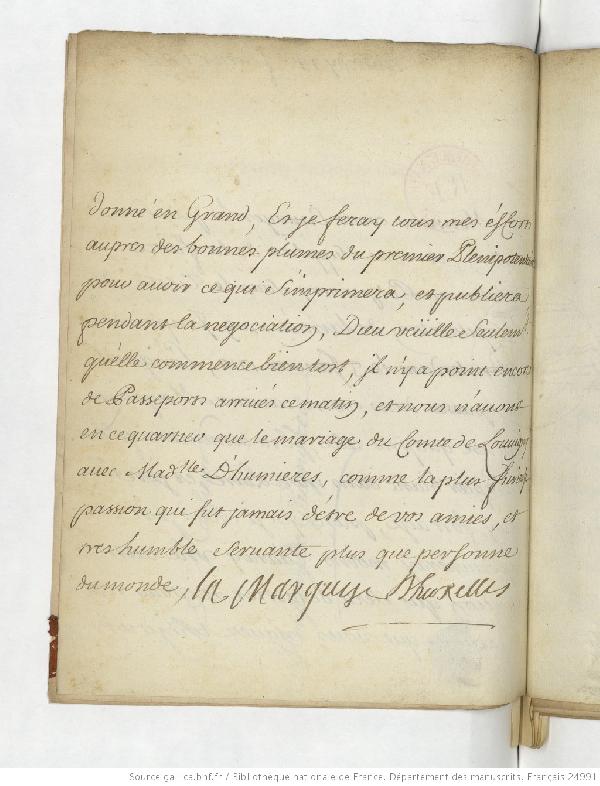 donné en Grand, Et je feray tous mes éfforts
aupres des bonnes plumes du premier Plenipotentiaire
pour avoir ce qui s'imprimera, et publiera
pendant la negociation, Dieu veüille seulemt
qu'elle commence bien tost, jl n'y a point encore
de Passeports arrivés ce matin, et nous n'avons
en ce quartier que le mariage du Comte de Louvigny
avec Madlle D'humieres, comme la plus
passion qui fut jamais d'être de vos amies, et
tres humble servante plus que personne
du monde, la Marquise Dhuxelles
Source gallica.bnf.fr / Bibliothèque nationale de France. Département des manuscrits. Français 24991